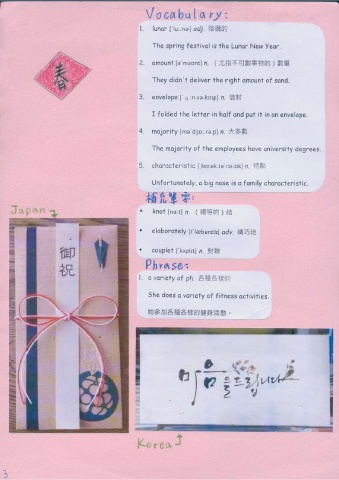 Vocabulary:
春
1. lunar adj. 陰曆的
The spring festival is the Lunar New Year.
2. amount n. (尤指不可數事物的) 數量
They didn't deliver the right amount of sand.
3. envelope n. 信封
I folded the letter in half and put it in an envelope.
4. majority n. 大多數
The majority of the employees have university degrees.
5. characteristic n. 特點
Unfortunately, a big nose is a family characteristic.
補充單字:
• knot n. (繩等的) 結
• elaborately adv. 精巧地
• couplet n. 對聯
Phrase:
1. a variety of ph. 各種各樣的
She does a variety of fitness activities.
她參加各種各樣的健身活動。
Japan
御祝
마음을드립니다
Korea
3